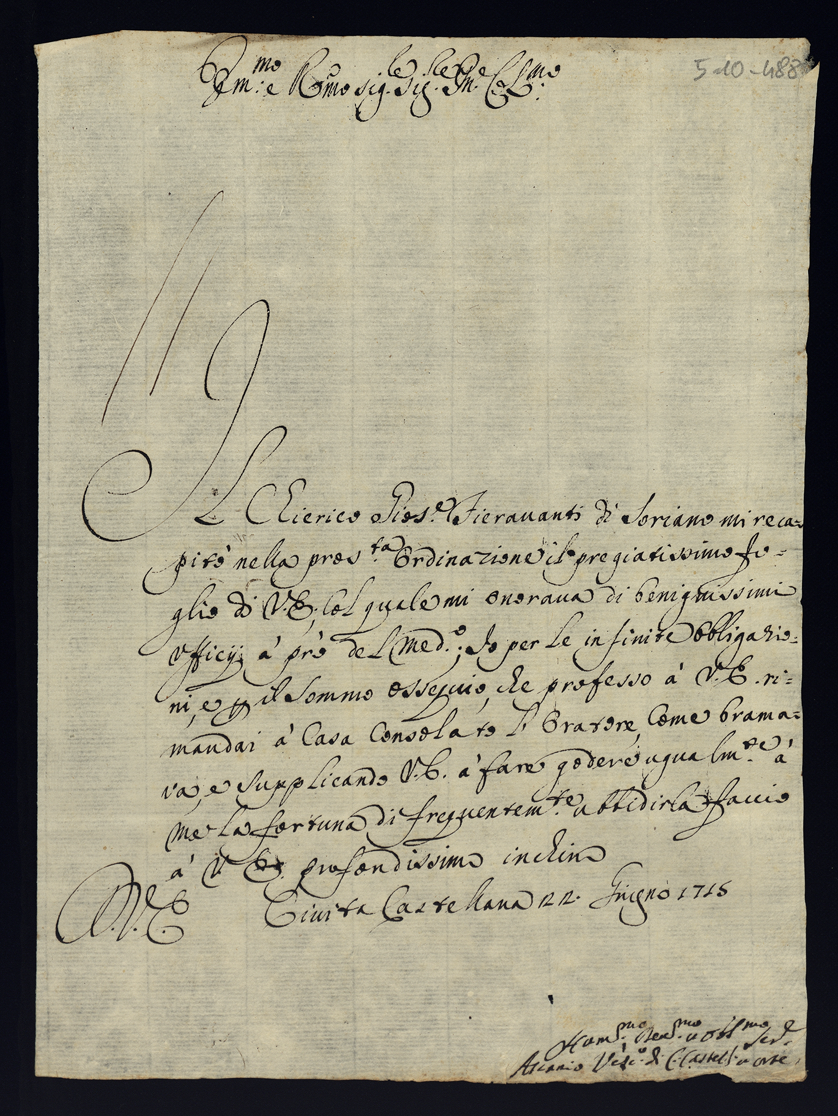 5-10-488
Em:mo e R:mo Sig:re Sig:re P:ne Col:mo
Il Chierico Gios.e Fieravanti di Soriano mi reca=
pitò nella pros.ta Ordinazione il pregiatissimo fo=
glio di V.E., col quale mi onorava di benignissimi
ufficij à prò del med.o; Io per le infinite obbligazio=
ni, e p il sommo ossequio, che professo à V.E. ri=
mandai à Casa consolato l'Oratore, come brama=
va, e supplicando V.E. à fare godere ugualm.te à
me la fortuna di frequentem.te obbidirla faccio
à V.E. profondissimo inchino
D.V.E. Civita Castellana 22. Giugno 1715
Hum:mo Dev:mo e Obl:mo Ser.e
Ascanio Vesc.o di C. Castell: e Orte